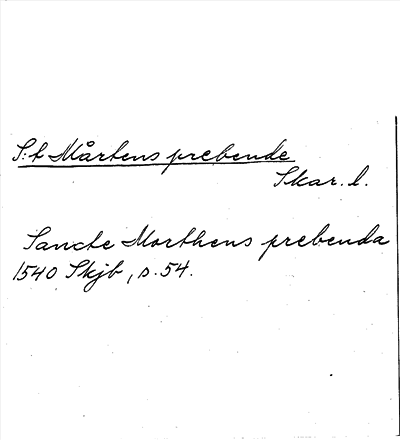 S:t Mårtens prebende
Skar. l.
Sancte Morthens prebenda
1540 Skjb, s. 54.